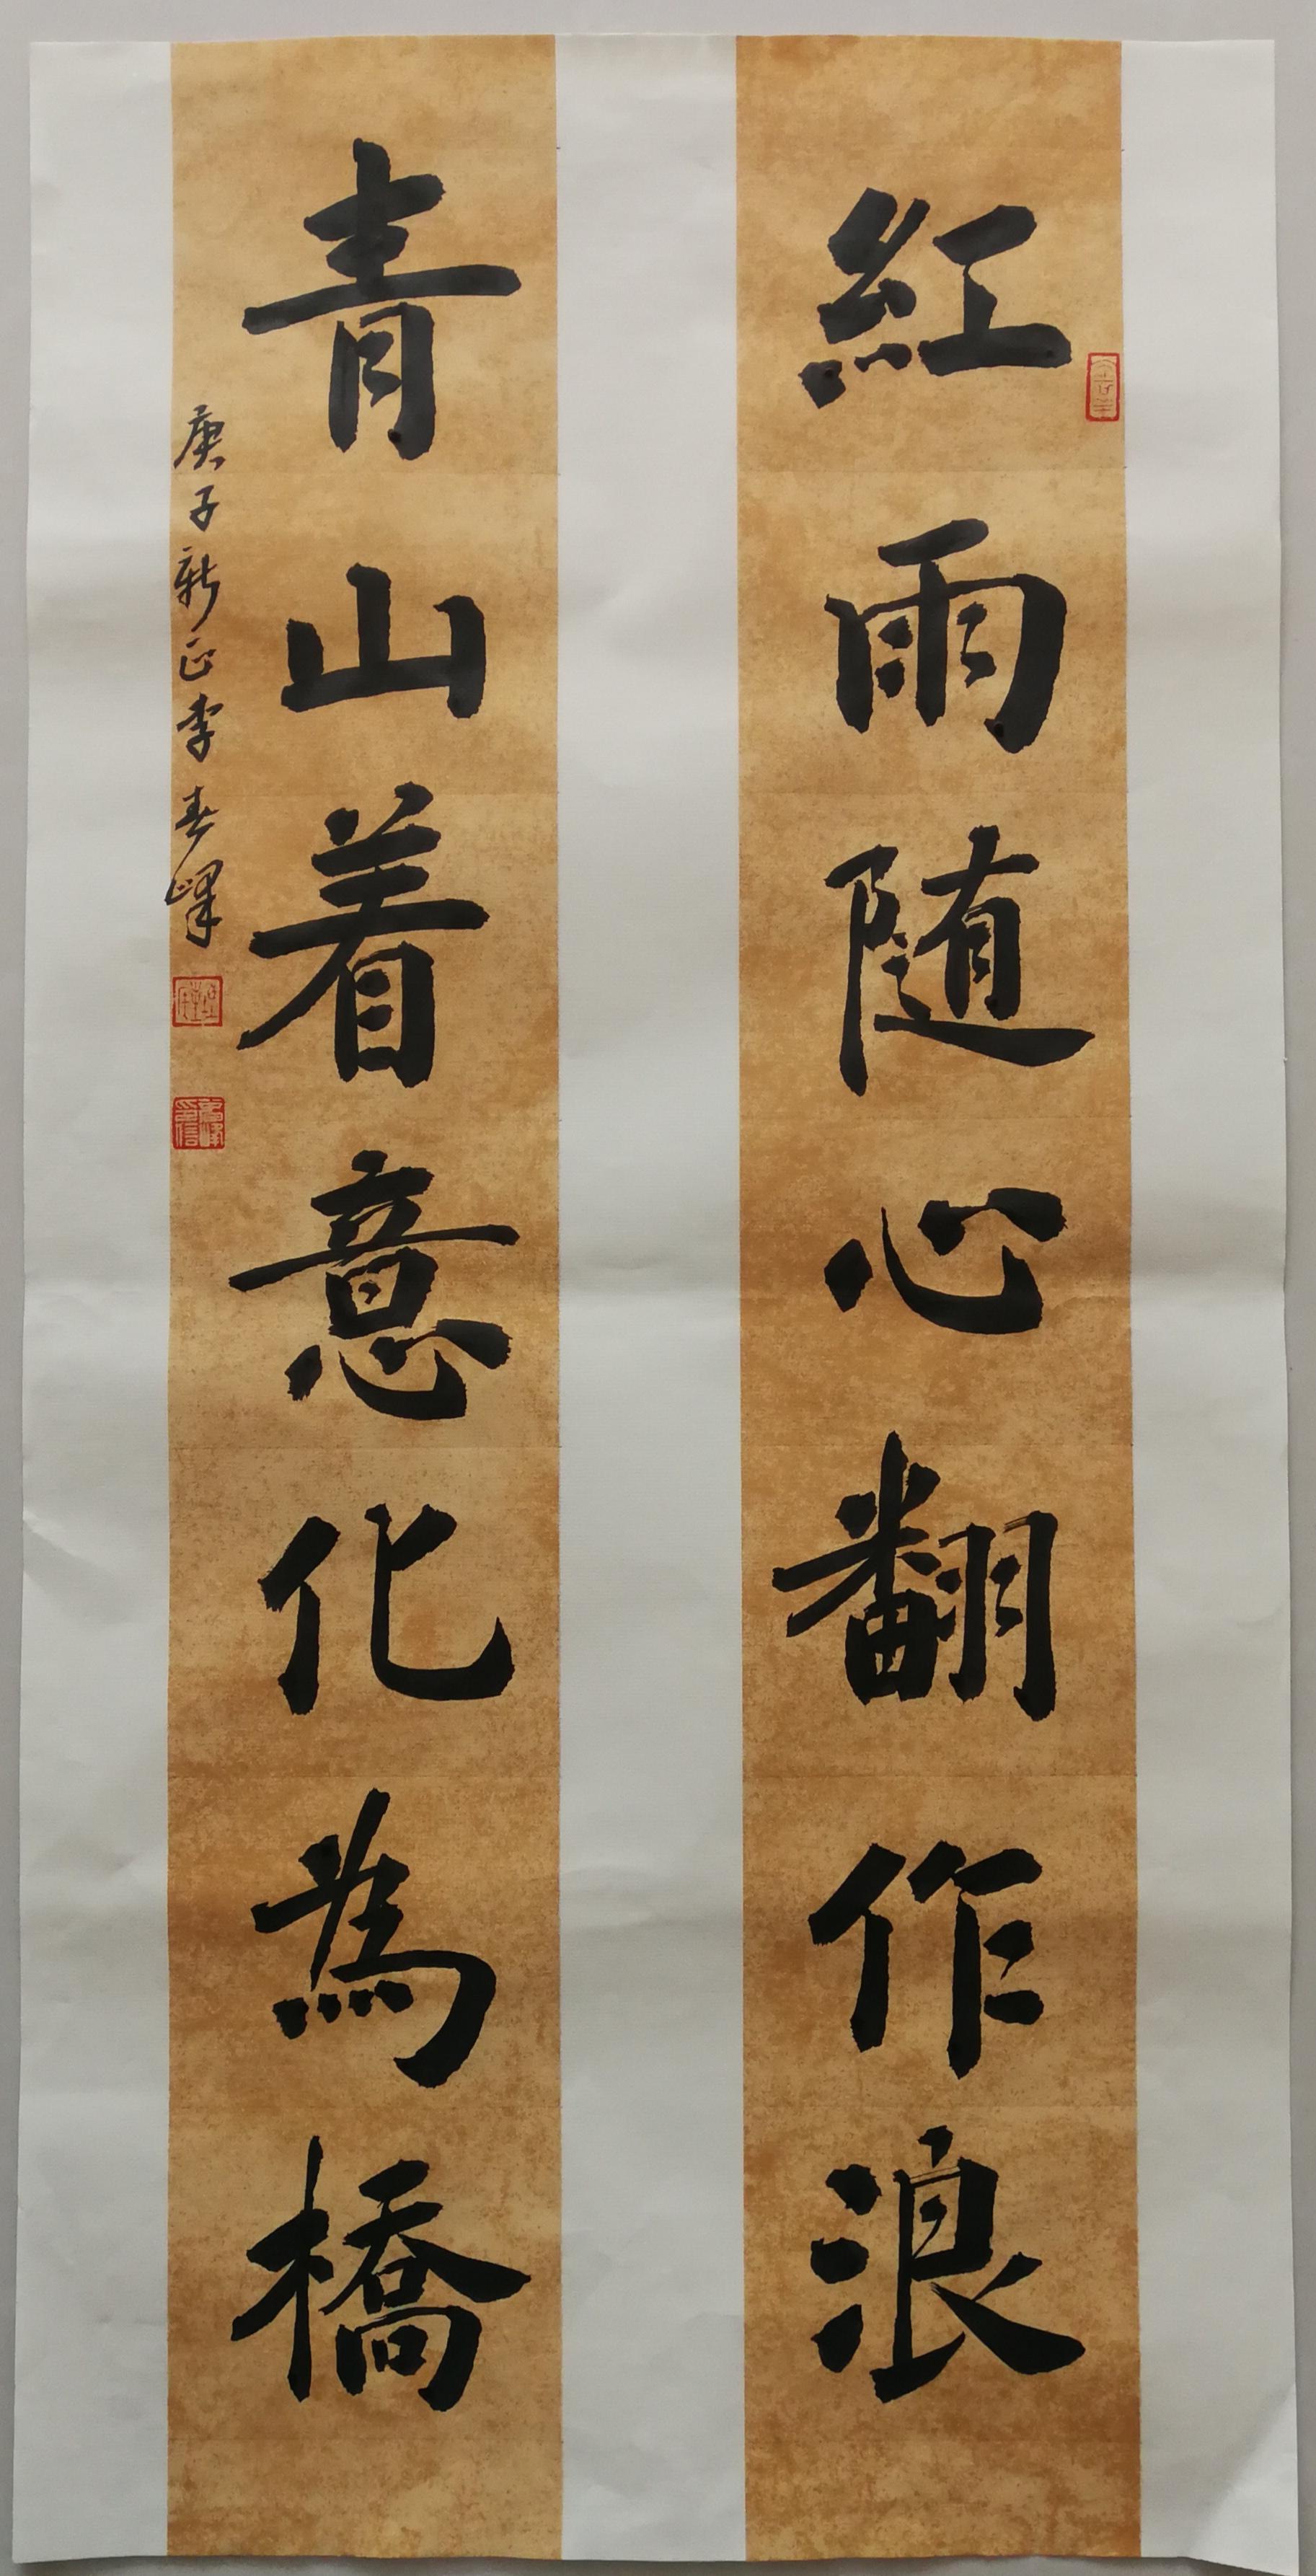 紅雨随心翻作浪
青山着意化為橋
庚子新正李春峰